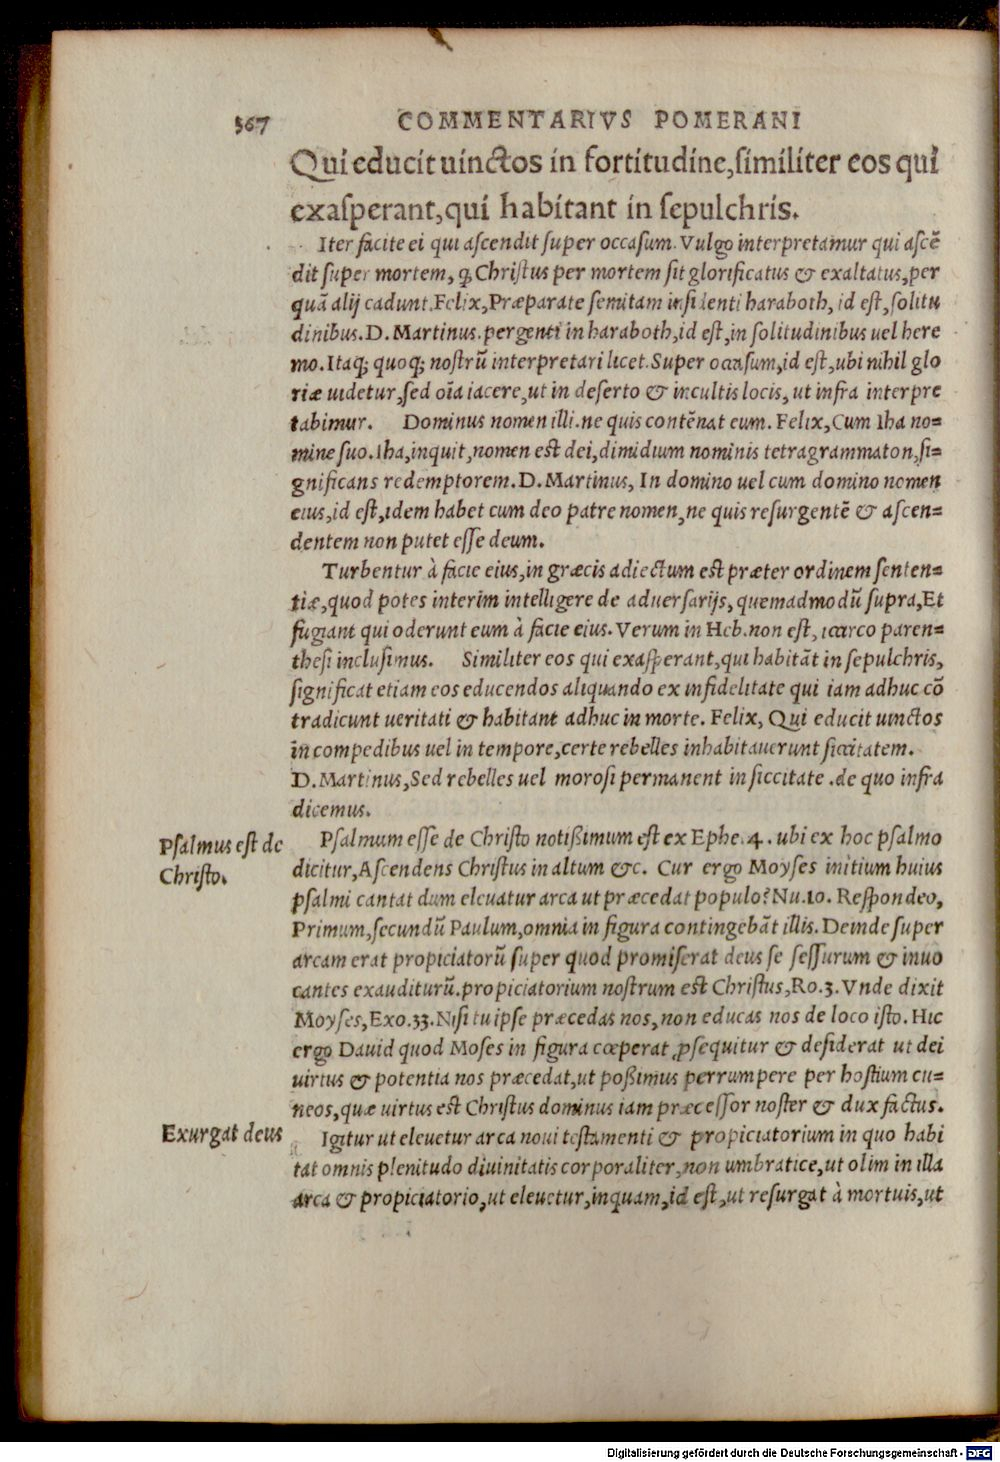 367 COMMENTARIVS POMERANI
Qui educit uinctos in fortitudine,ſimiliter eos qui
exaſperant,qui habitant in ſepulchris.
Iter facite ei qui aſcendit ſuper occaſum. Vulgo interpretamur qui aſcē
dit ſuper mortem, ꝙ Chriſtus per mortem ſit glorificatus & exaltatus,per
quā alij cadunt.Felix,Præparate ſemitam inſidenti haraboth, id eſt,ſolitu
dinibus.D.Martinus.pergenti in haraboth,id eſt,in ſolitudinibus uel here
mo.Itaq; quoq; noſtrū interpretari licet.Super occaſum,id eſt,ubi nihil glo
riæ uidetur,ſed oīa iacere,ut in deſerto & incultis locis, ut infra interpre
tabimur. Dominus nomen illi.ne quis contēnat eum. Felix,Cum Iha no=
mine ſuo.Iha,inquit,nomen eſt dei,dimidium nominis tetragrammaton,ſi=
gnificans redemptorem.D.Martinus, In domino uel cum domino nomen
eius,id eſt,idem habet cum deo patre nomen,ne quis reſurgentē & aſcen=
dentem non putet eſſe deum.
Turbentur à facie eius,in græcis adiectum eſt præter ordinem ſenten=
tiæ,quod potes interim intelligere de aduerſarijs, quemadmodū ſupra,Et
fugiant qui oderunt eum à facie eius.Verum in Heb.non eſt, idarco paren=
theſi incluſimus. Similiter eos qui exaſperant,qui habitāt in ſepulchris,
ſignificat etiam eos educendos aliquando ex infidelitate qui iam adhuc cō
tradicunt ueritati & habitant adhuc in morte. Felix, Qui educit uinctos
in compedibus uel in tempore,certe rebelles inhabitauerunt ſiccitatem.
D.Martinus,Sed rebelles uel moroſi permanent in ſiccitate .de quo infra
dicemus.
Pſalmus eſt de
Chriſto.
Pſalmum eſſe de Chriſto notißimum eſt ex Ephe.4. ubi ex hoc pſalmo
dicitur,Aſcendens Chriſtus in altum &c. Cur ergo Moyſes initium huius
pſalmi cantat dum eleuatur arca ut præcedat populo? Nu.10. Reſpondeo,
Primum,ſecundū Paulum,omnia in figura contingebāt illis.Deinde ſuper
arcam erat propiciatorū ſuper quod promiſerat deus ſe ſeſſurum & inuo
cantes exauditurū.propiciatorium noſtrum eſt Chriſtus,Ro.3. Vnde dixit
Moyſes,Exo.33.Niſi tu ipſe præcedas nos,non educas nos de loco iſto. Hic
ergo Dauid quod Moſes in figura cœperat ꝓſequitur & deſiderat ut dei
uirtus & potentia nos præcedat,ut poßimus perrumpere per hoſtium cu=
neos,quæ uirtus eſt Chriſtus dominus iam præceſſor noſter & dux factus.
Exurgat deus
Igitur ut eleuetur arca noui teſtamenti & propiciatorium in quo habi
tat omnis plenitudo diuinitatis corporaliter,non umbratice,ut olim in illa
arca & propiciatorio,ut eleuetur,inquam,id eſt,ut reſurgat à mortuis,ut
Digitalisierung gefördert durch die Deutsche Forschungsgemeinschaft - DFG